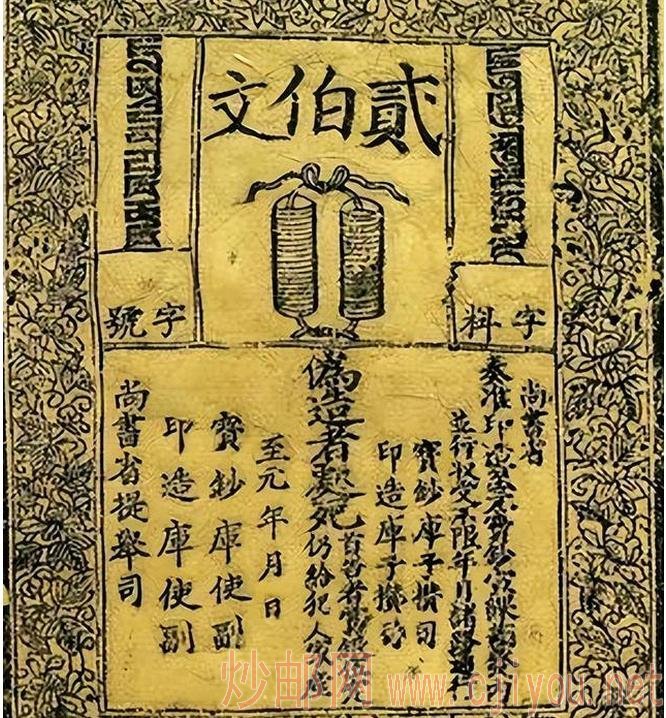 貳伯文
字料
字號
尚書省
奏准印造至元寶鈔宣課差役內
並行收受不限年月諸路通行
寶鈔庫子攢司
印造庫子攢司
偽造者處死首告者賞銀
仍給犯人家產
至元年月日
寶鈔庫使副
印造庫使副
尚書省提舉司
炒邮网 www.cjiyou.net